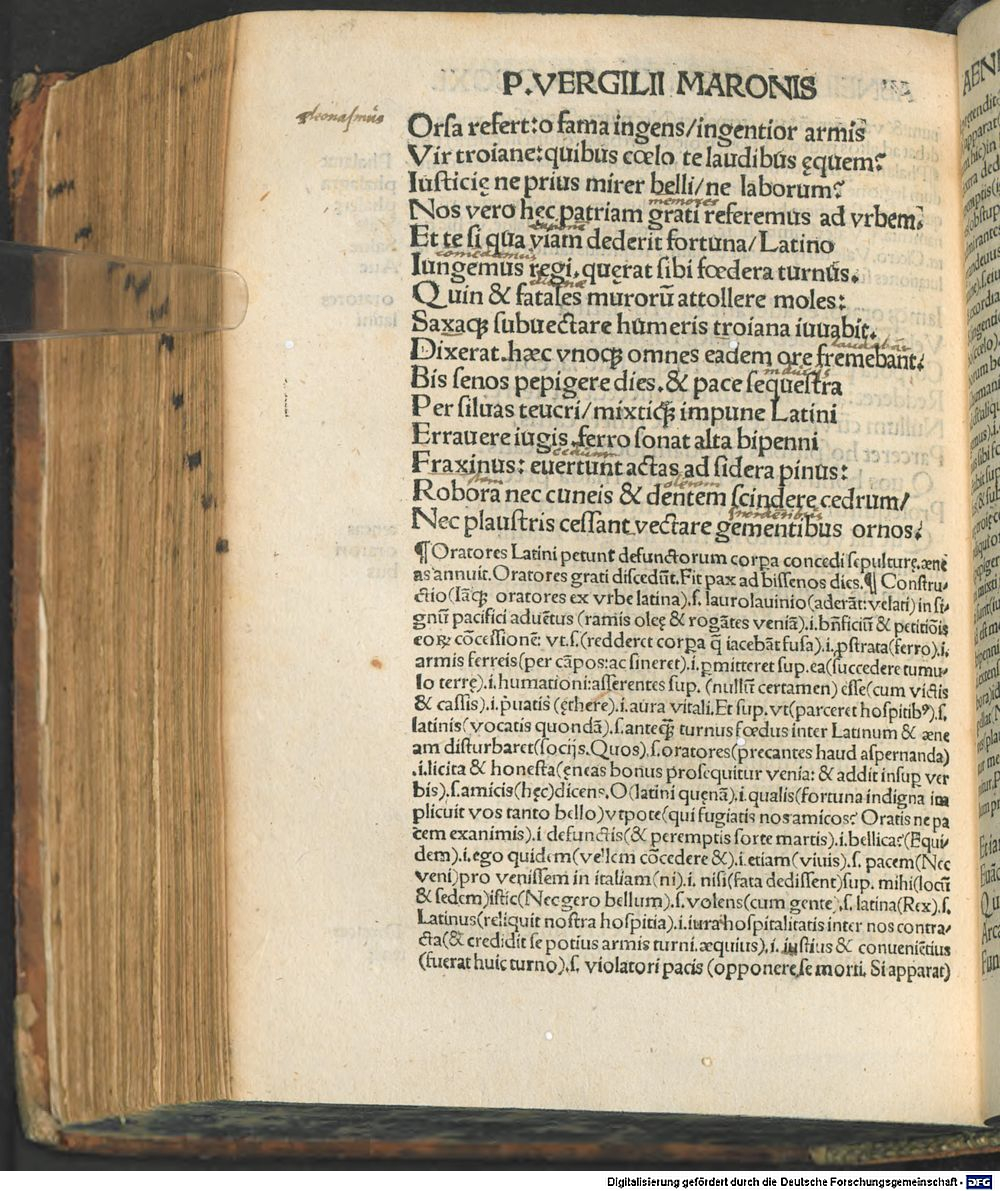 P.VERGILII MARONIS
pleonasmus
Orsa refert:o fama ingens/ingentior armis
Vir troiane:quibus cœlo te laudibus ęquem?
Iusticię ne prius mirer belli/ne laborum?
memores
Nos vero hęc patriam grati referemus ad vrbem.
Et te si qua viam dederit fortuna/Latino
Iungemus regi.quęrat sibi fœdera turnus.
Quin & fatales muroru᷑ attollere moles:
Saxaqꝫ subuectare humeris troiana iuuabit.
Dixerat.hæc vnoqꝫ omnes eadem ore fremebant.
Bis senos pepigere dies.& pace sequestra
Per siluas teucri/mixtiqꝫ impune Latini
Errauere iugis.ferro sonat alta bipenni
Fraxinus: euertunt actas ad sidera pinus:
Robora nec cuneis & olentem scindere cedrum/
Nec plaustris cessant vectare gementibus ornos.
¶Oratores Latini petunt defunctorum corpa concedi sepulturę.æne
as annuit.Oratores grati discedu᷑t.Fit pax ad bissenos dies.¶ Constru-
ctio(Iāqꝫ oratores ex vrbe latina).ſ. laurolauinio(aderāt:velati)in si-
gnū pacifici aduētus (ramis oleę & rogātes veniā).i.bn̄ficiū & petitiōis
eoꝝ cōcessionē: vt.ſ.(redderet corpa q̄ iacebāt fusa).i.pstrata(ferro).i.
armis ferreis(per cāpos:ac sineret).i.pmitteret sup.ea(succedere tumu-
lo terrę).i.humationi:asserentes sup. (nullū certamen) esse(cum victis
& cassis).i.puatis (ęthere).i.aura vitali.Et sup.vt(parceret hospitibꝰ).ſ.
latinis(vocatis quondā).ſ.anteqꝫ turnus fœdus inter Latinum & æne
am disturbaret(socijs.Quos).ſ.oratores(precantes haud aspernanda)
.i.licita & honesta(ęneas bonus prosequitur venia: & addit insup ver
bis).ſ.amicis(hęc)dicens.O(latini quęnā).i.qualis(fortuna indigna im
plicuit vos tanto bello)vtpote(qui fugiatis nos amicos? Oratis ne pa
cem exanimis).i defunctis(& peremptis sorte martis).i.bellica?(Equi-
dem).i.ego quidem(vellem cōcedere &).i.etiam(viuis).ſ. pacem(Nec
veni)pro venissem in italiam(ni).i. nisi(fata dedissent)sup. mihi(locū
& sedem)istic(Nec gero bellum).ſ.volens(cum gente).ſ.latina(Rex).ſ.
Latinus(reliquit nostra hospitia).i.iura hospitalitatis inter nos contra-
cta(& credidit se potius armis turni.æquius).i. iustius & conueniētius
(fuerat huic turno).ſ. violatori pacis (opponere se morti. Si apparat)
Digitalisierung gefördert durch die Deutsche Forschungsgemeinschaft - DFG